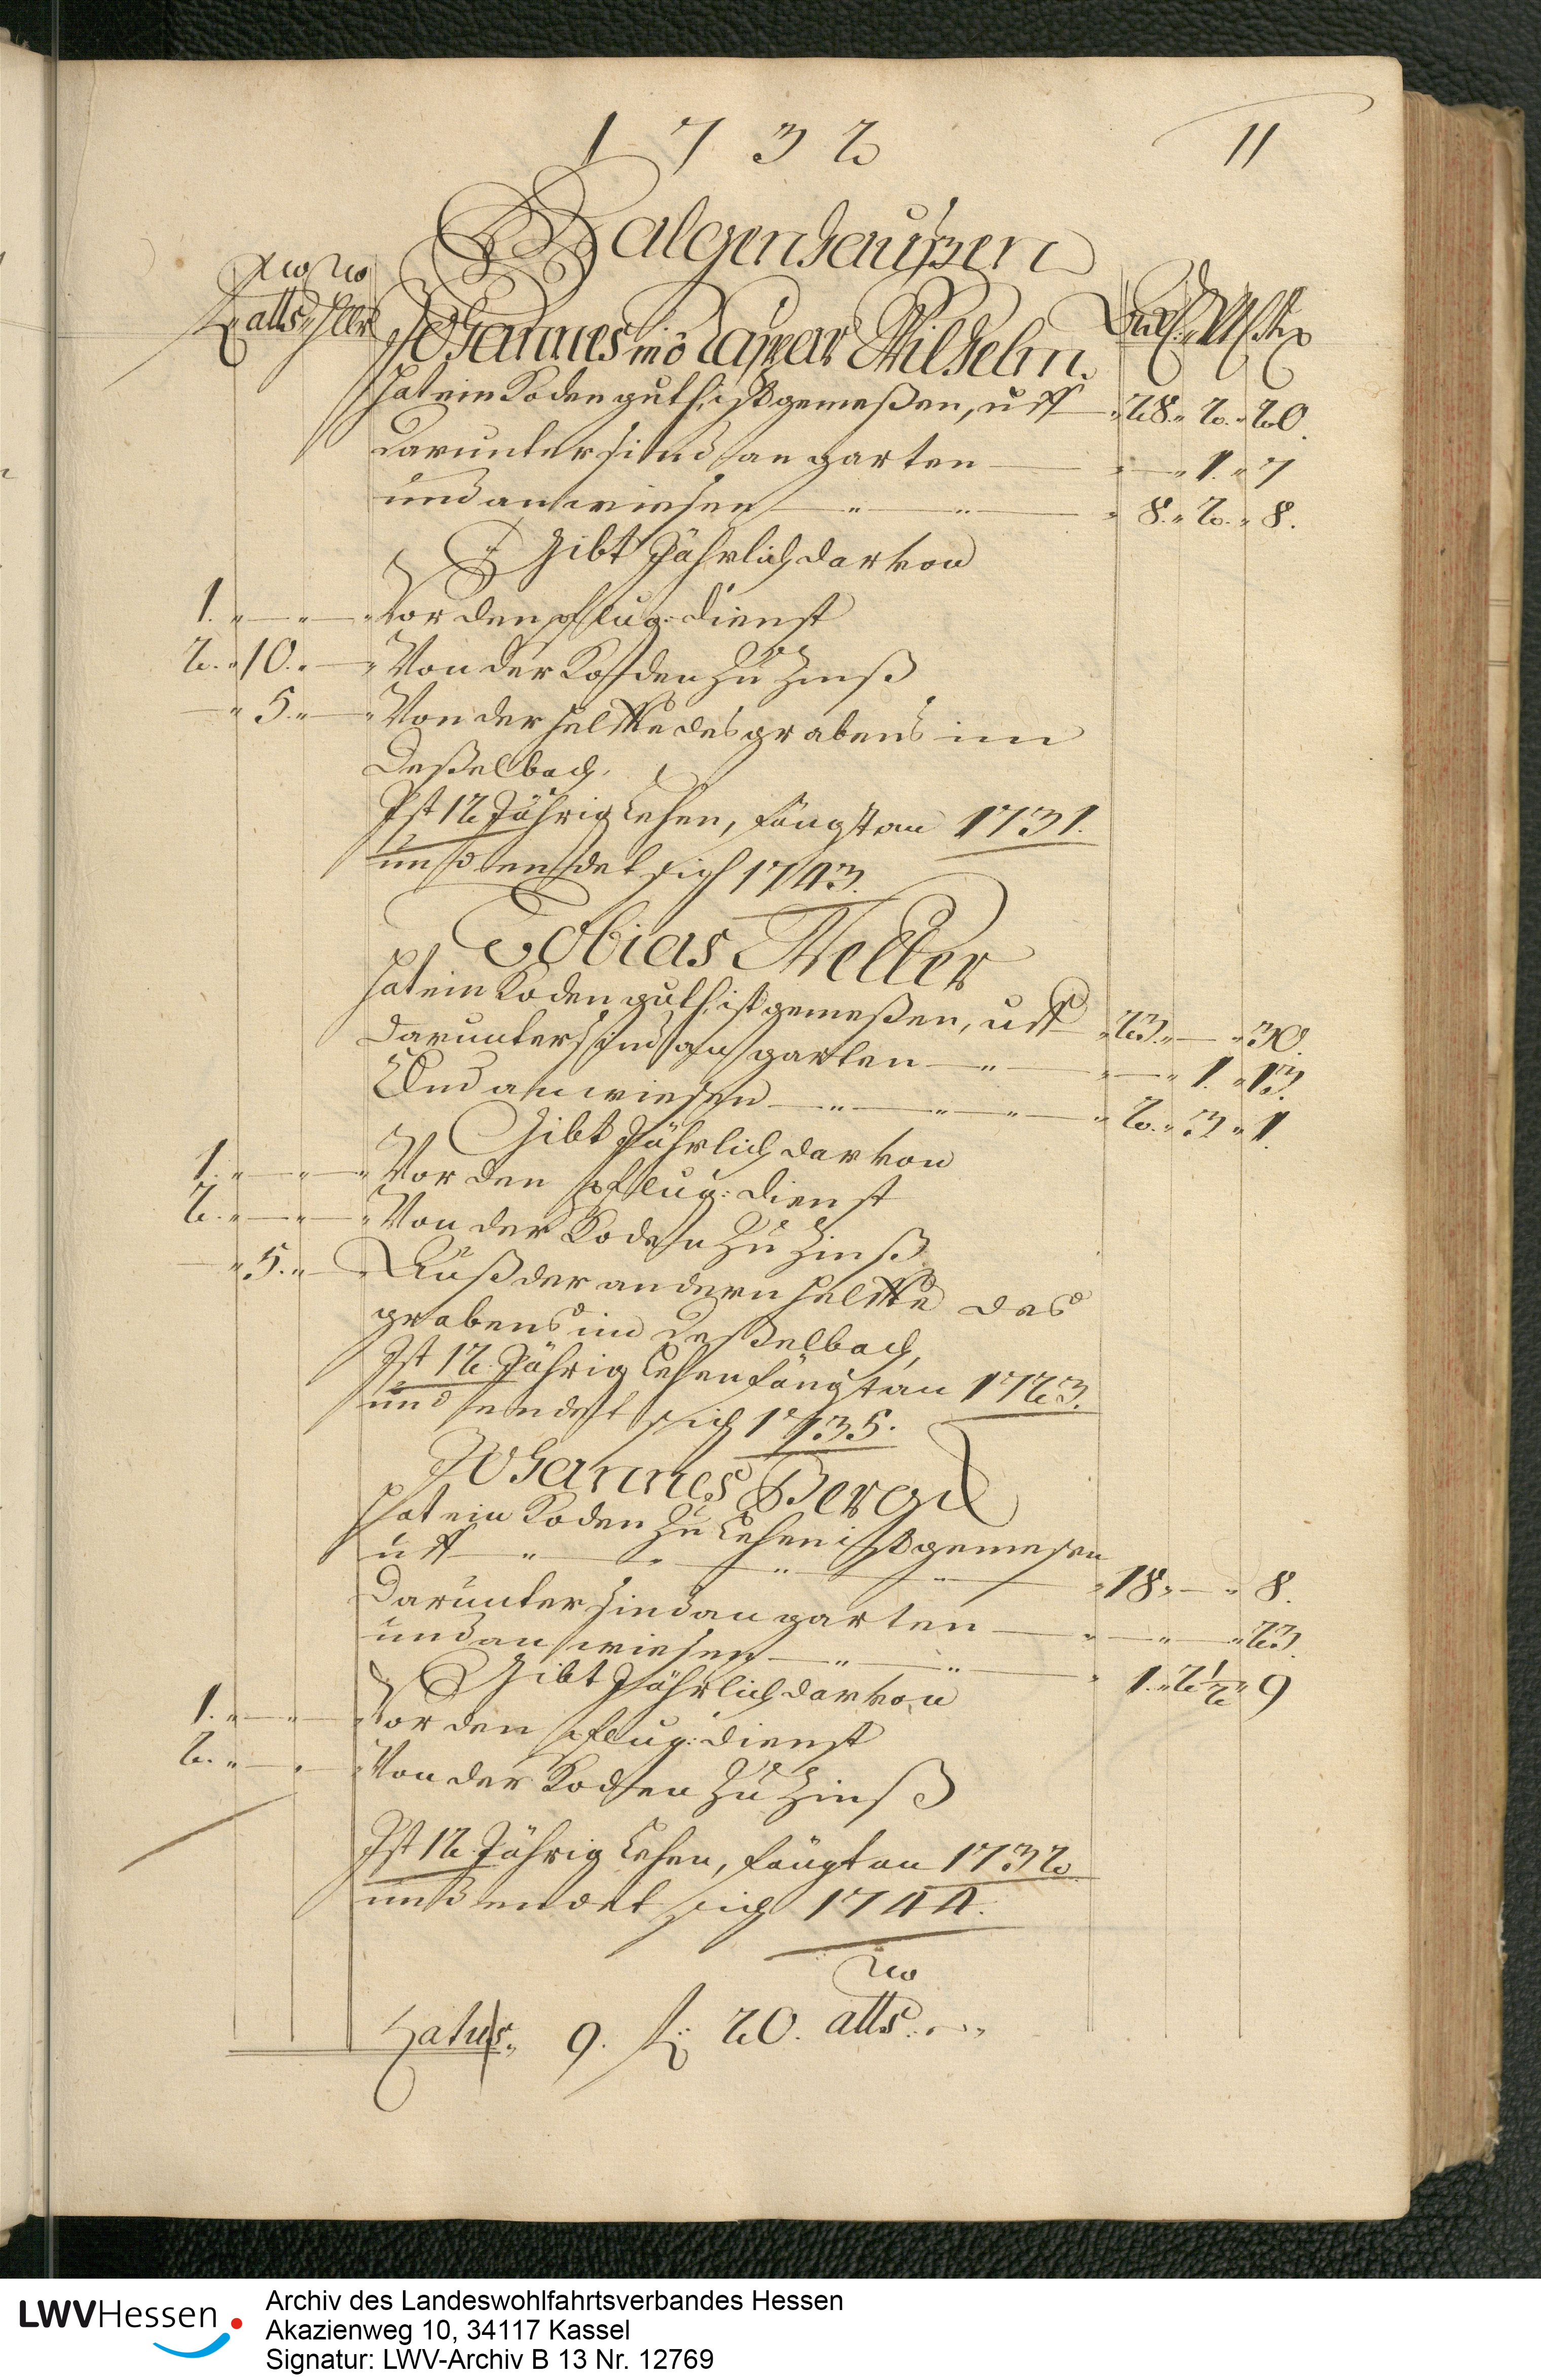 1732
11
Balgenhaußen
fl. alb. hllr
Johannes mo Caspar Wilhelm.
hat ein Koden guth, ist gemeßen, uff „ 28. „ 2. „ 20.
darunter sind an garten — „ — „ 1. „ 7
und an wiesen — „ — „ — „ 8. „ 2. „ 8.
Gibt Jährlich darvon
1. „ — „ — „ Vor den pflug: dienst
2. „ 10. „ — „ Von der Koden zu Zinß
— „ 5. „ — „ Von der helffte des grabens im
Deßelbach.
Ist 12 Jährig Lehen, fängt an 1731.
und endet sich 1743.
Tobias Weller
hat ein Koden guth, ist gemeßen, uff „ 23. „ — „ 30.
darunter sind an garten — „ — „ — „ 1. „ 13.
Und an wiesen — „ — „ — „ — „ 2. „ 3 „ 1.
Gibt Jährlich darvon
1. „ — „ — „ Vor den pflug: dienst
2. „ — „ — „ Von der Koden zu Zinß
— „ 5. „ — „ Auß der andern helffte des
grabens im Deßelbach,
Ist 12. Jährig Lehen fängt an 1723.
und endet sich 1735.
Johannes Berg
hat ein Koden zu Lehen ist gemesen
uff — „ — „ — „ — „ — „ 18. „ — „ 8.
Darunter sind an garten — „ — „ — „ 23.
und an wiesen — „ — „ — „ 1. „ 2 1/2 „ 9
Gibt Jährlich darvon
1. „ — „ — „ Vor den pflug: dienst
2. „ — „ — „ Von der Koden zu Zinß
Ist 12. Jährig Lehen, fängt an 1732
und endet sich 1744.
Latus. 9. fl: 20. alb.
LWVHessen
Archiv des Landeswohlfahrtsverbandes Hessen
Akazienweg 10, 34117 Kassel
Signatur: LWV-Archiv B 13 Nr. 12769